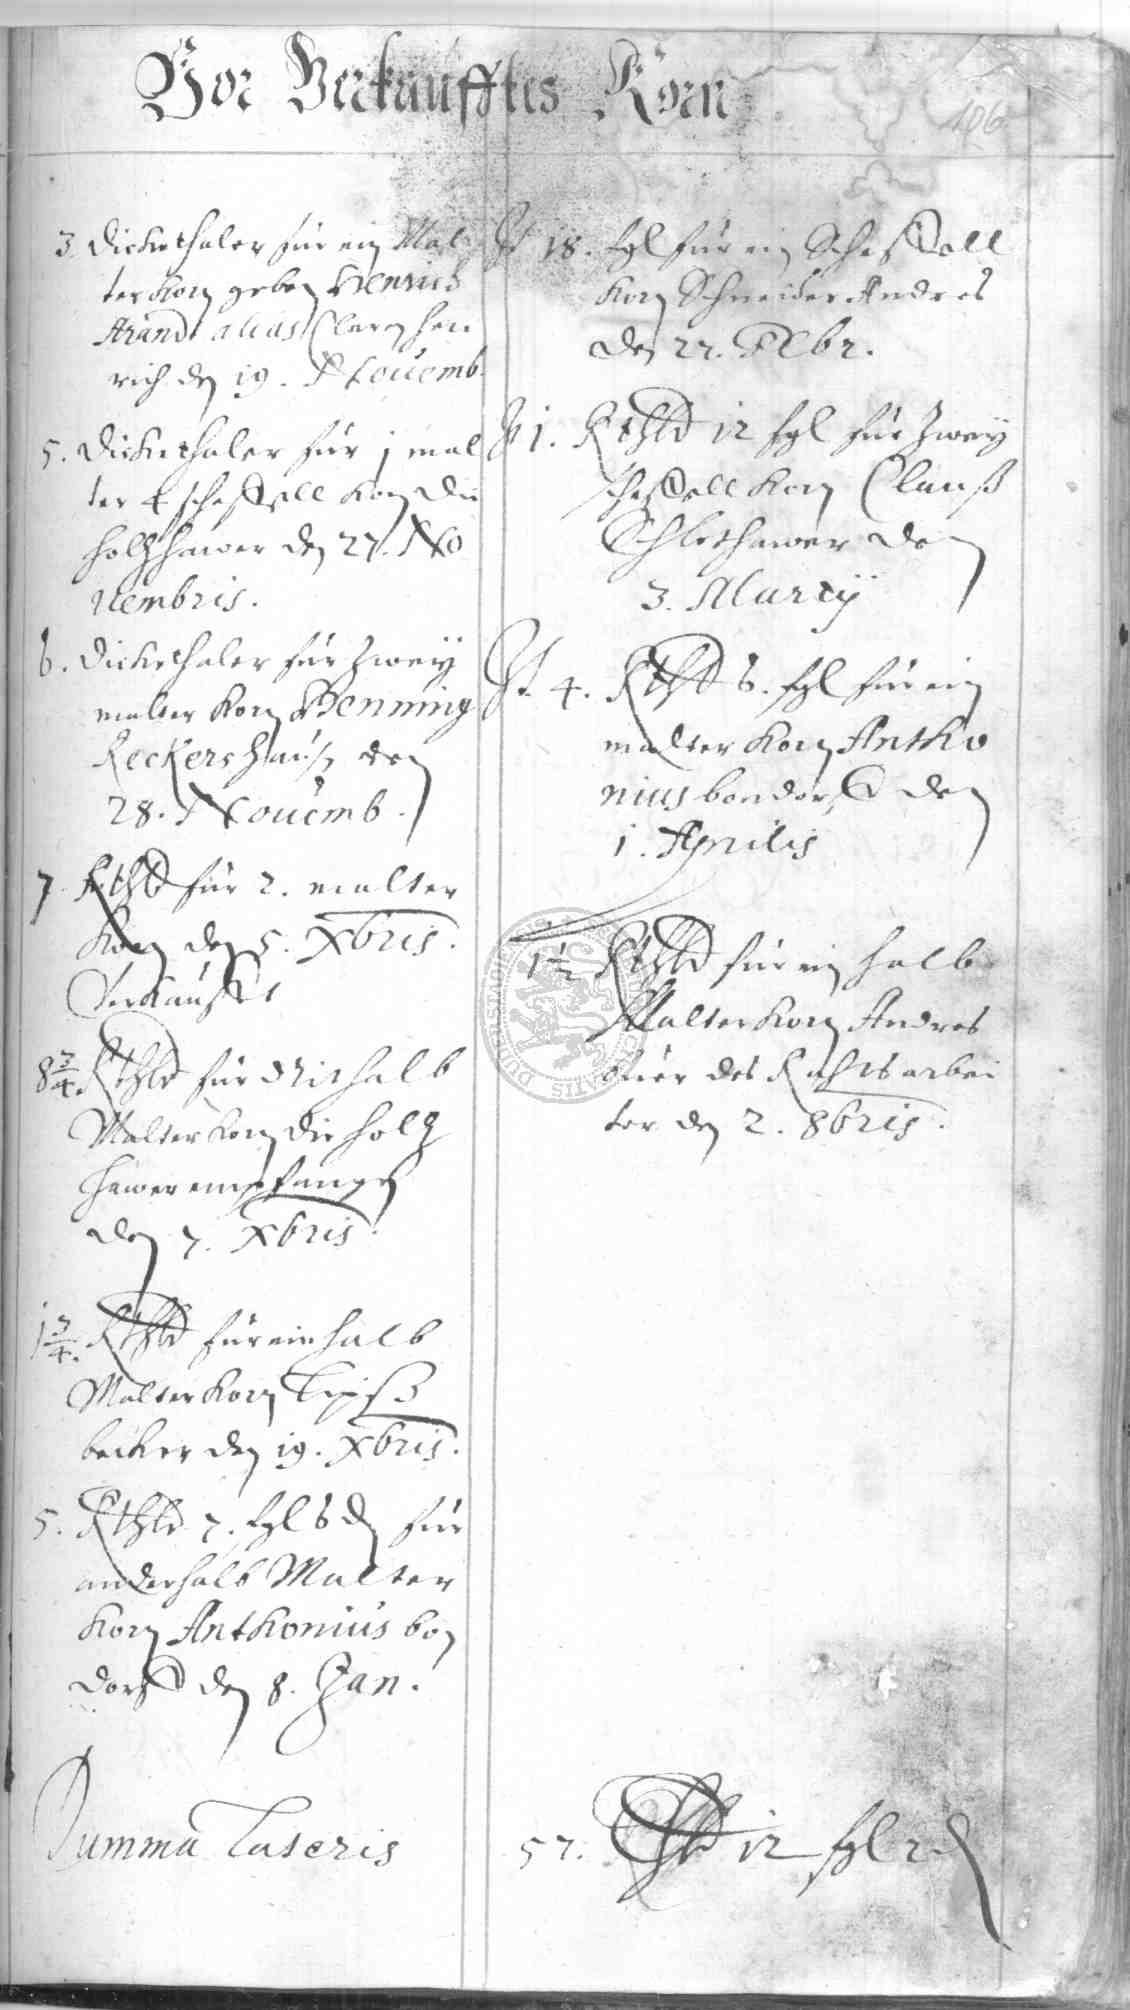 Vor Verkaufftes Korn
106
3. Dickethaler für ein Mal
ter Korn geben Henrich
Arand alias Claren hen
rich den 19. Nouemb.
5. Dickethaler für j mal
ter 4 scheffell Korn die
holtzhawer den 27. No
uembris.
6. Dickethaler für zwey
malter Korn Henning
Reckershausen den
28. Nouemb.
7. Rthlr für 2. malter
Korn den 5. Xbris.
Verkaufft
8 3/4. Rthlr für drithalb
Malter Korn die holtz
hawer empfangen
den 7. Xbris.
1 3/4. Rthlr für ein halb
Malter Korn
becker den 19. Xbris.
5. Rthlr 7. sgl 6 d für
anderhalb Malter
Korn Anthonius bon
dorff den 8. Jan.
18. sgl für ein Scheffell
Korn Schneider Andres
den 22. Febr.
1. Rthlr 12 sgl für zwey
scheffell Korn Clauß
Schlothawer den
3. Martij
4. Rthlr 6. sgl für ein
malter Korn Antho
nius bondorff den
1. Aprilis
1 1/2 Rthlr für ein halb
Malter Korn Andres
des Rahts arbei
ter den 2. 8bris.
Summa Lateris
57. Rthlr 12 sgl 2 d